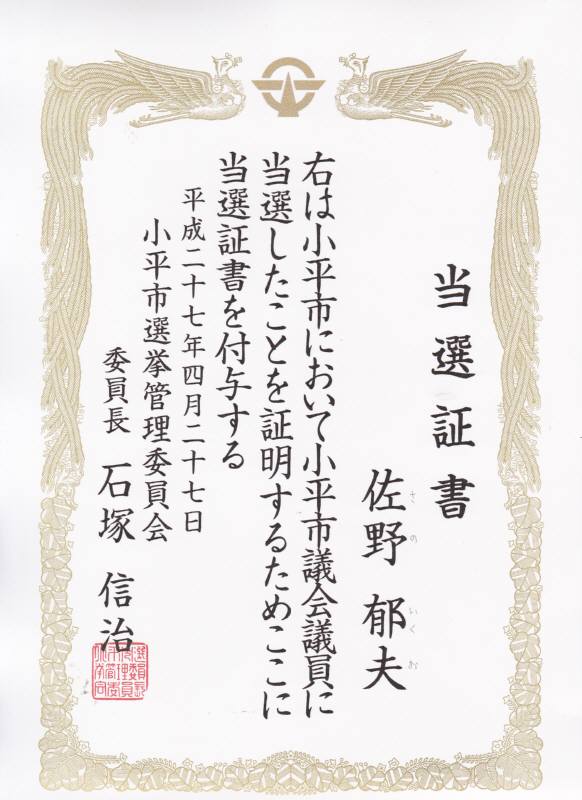 当選証書
佐野 郁夫
さの いくお
右は小平市において小平市議会議員に
当選したことを証明するためここに
当選証書を付与する
平成二十七年四月二十七日
小平市選挙管理委員会
委員長 石塚 信治